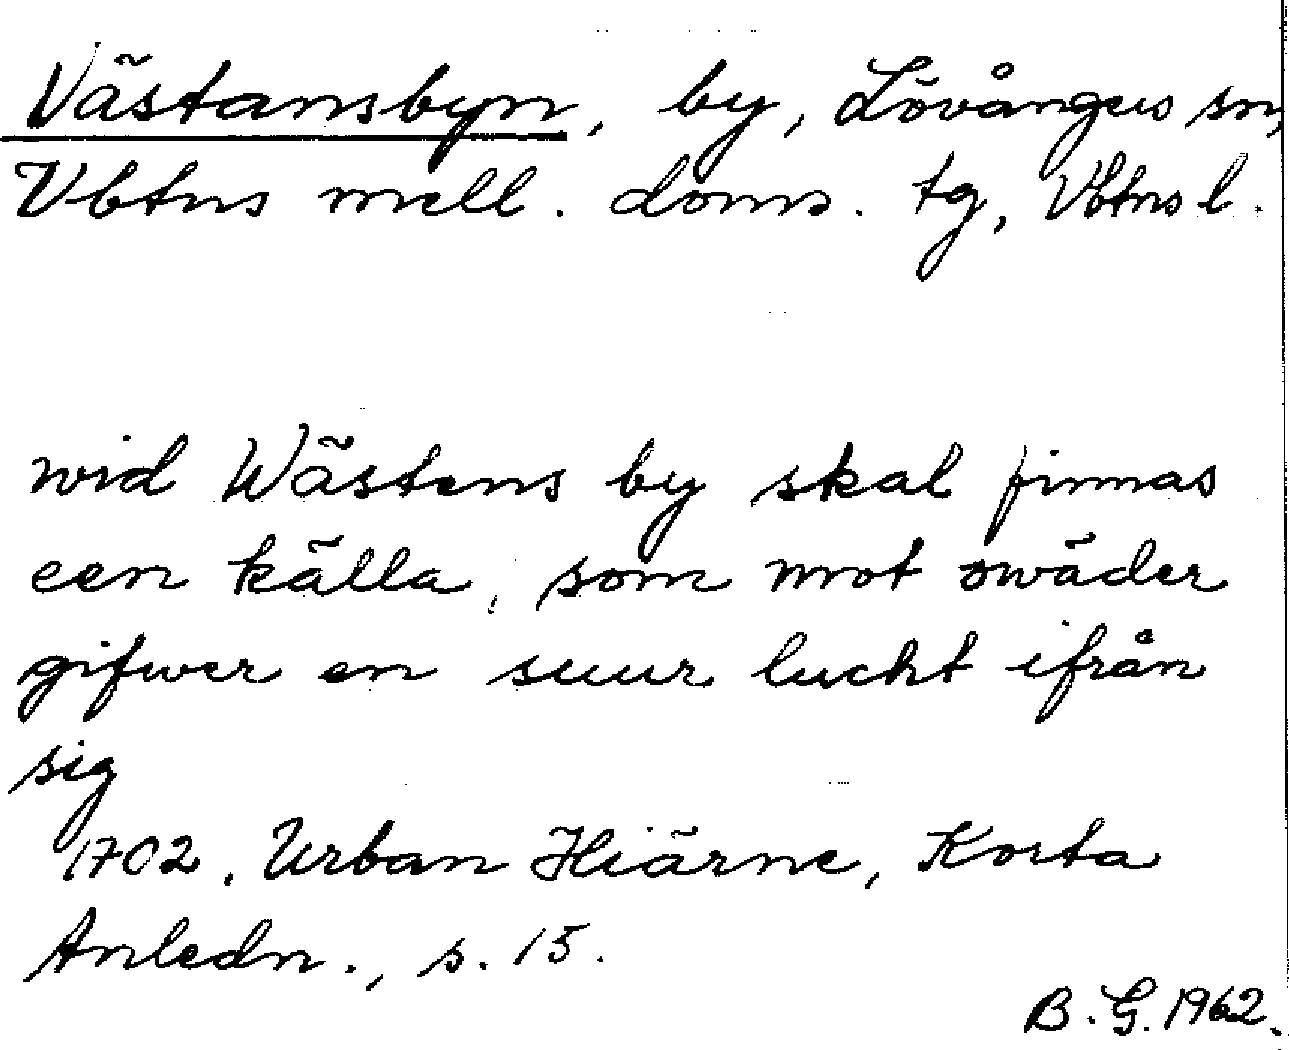 Västansbyn, by, Lövångers sn,
Vbtns mell. doms. tg, Vbtns l.
wid Wästens by skal finnas
een källa, som mot owäder
gifwer en suur lucht ifrån
sig
1702. Urban Hiärne, Korta
Anledn., s. 15.
B. G. 1962.